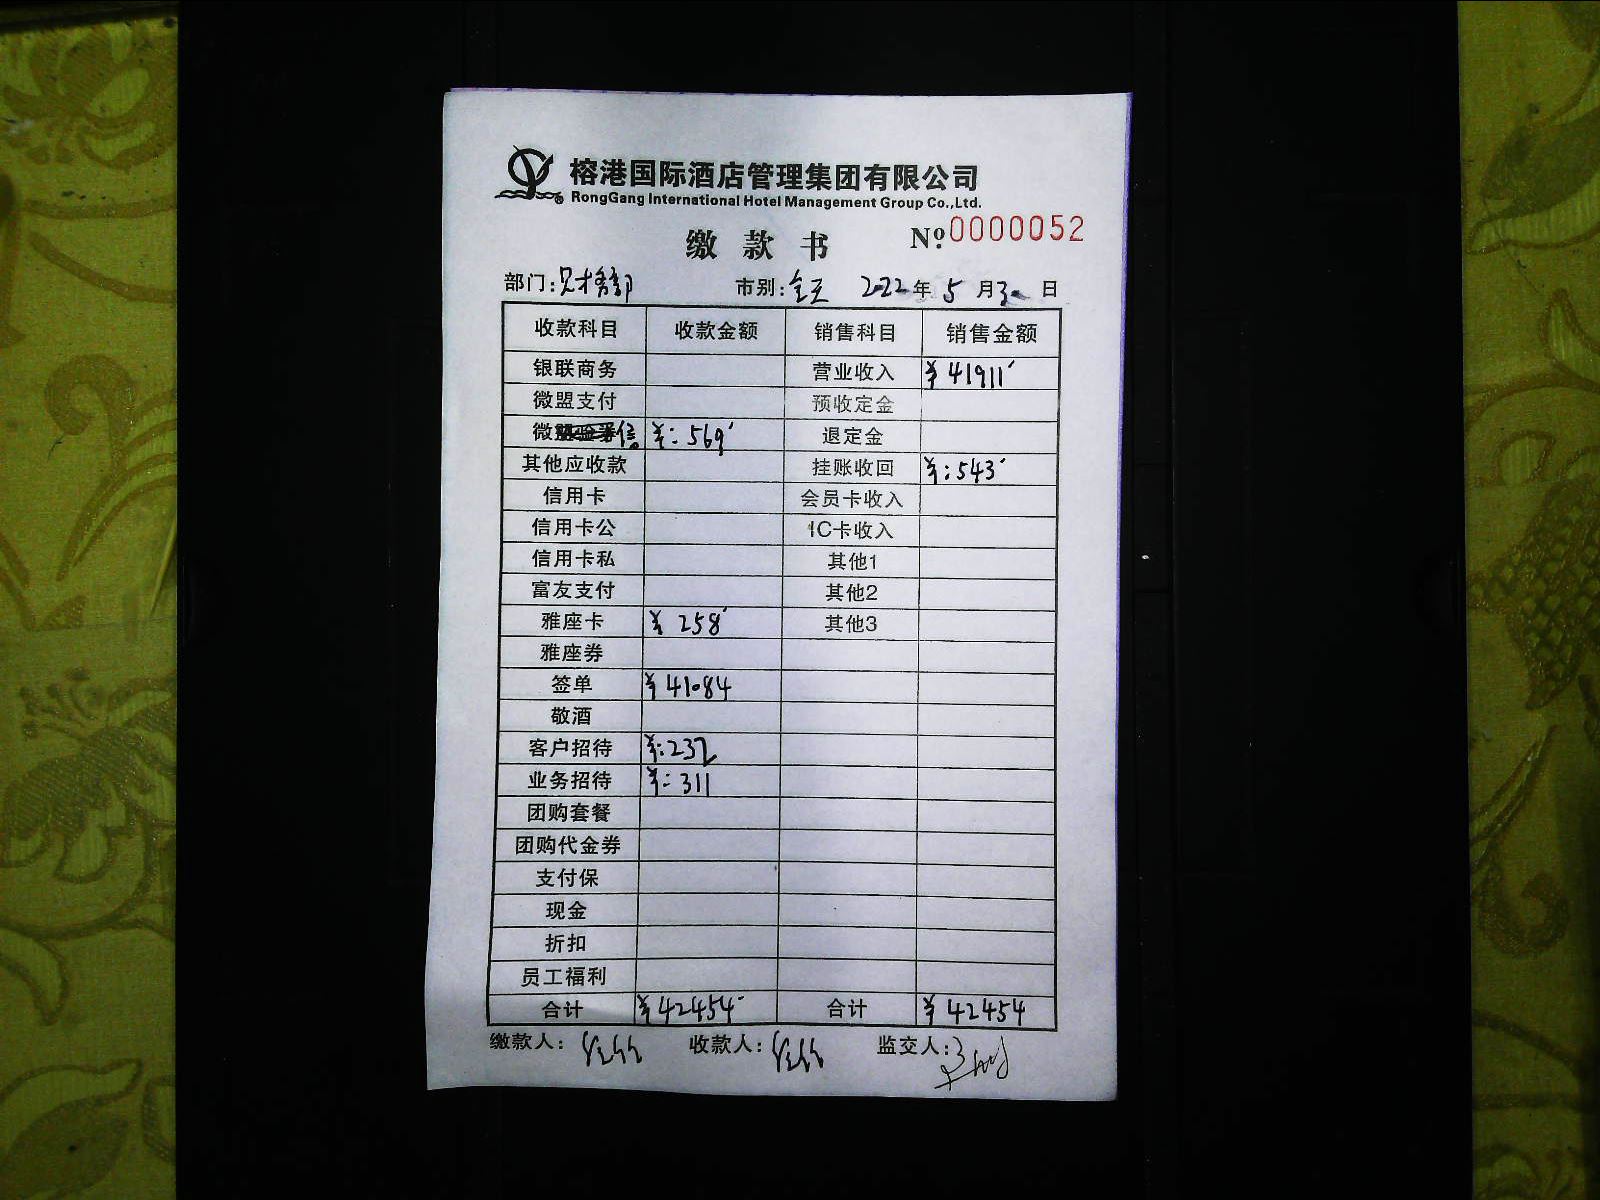 榕港国际酒店管理集团有限公司
RongGang International Hotel Management Group Co.,Ltd.
缴款书 №0000052
部门:财务部 市别:全天 2022年5月30日
收款科目 收款金额 销售科目 销售金额
银联商务 营业收入 ¥41911
微盟支付 预收定金
微信 ¥:569 退定金
其他应收款 挂账收回 ¥:543
信用卡 会员卡收入
信用卡公 IC卡收入
信用卡私 其他1
富友支付 其他2
雅座卡 ¥258 其他3
雅座券
签单 ¥41084
敬酒
客户招待 ¥:232
业务招待 ¥:311
团购套餐
团购代金券
支付保
现金
折扣
员工福利
合计 ¥42454 合计 ¥42454
缴款人: 收款人: 监交人: